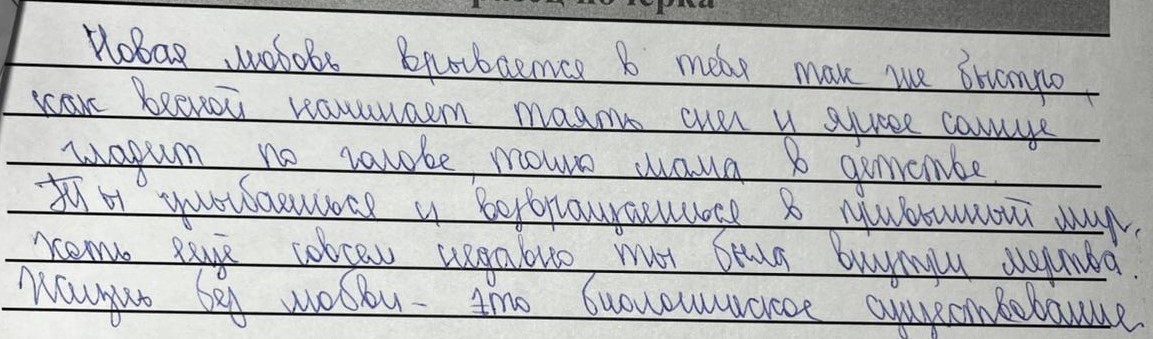 разец почерка
Новая любовь врывается в тебя так же быстро,
как весной начинает таять снег и яркое солнце
гладит по голове, точно мама в детстве.
Ты улыбаешься и возвращаешься в привычный мир,
хоть ещё совсем недавно ты была внутри мертва.
Жизнь без любви - это биологическое существование.